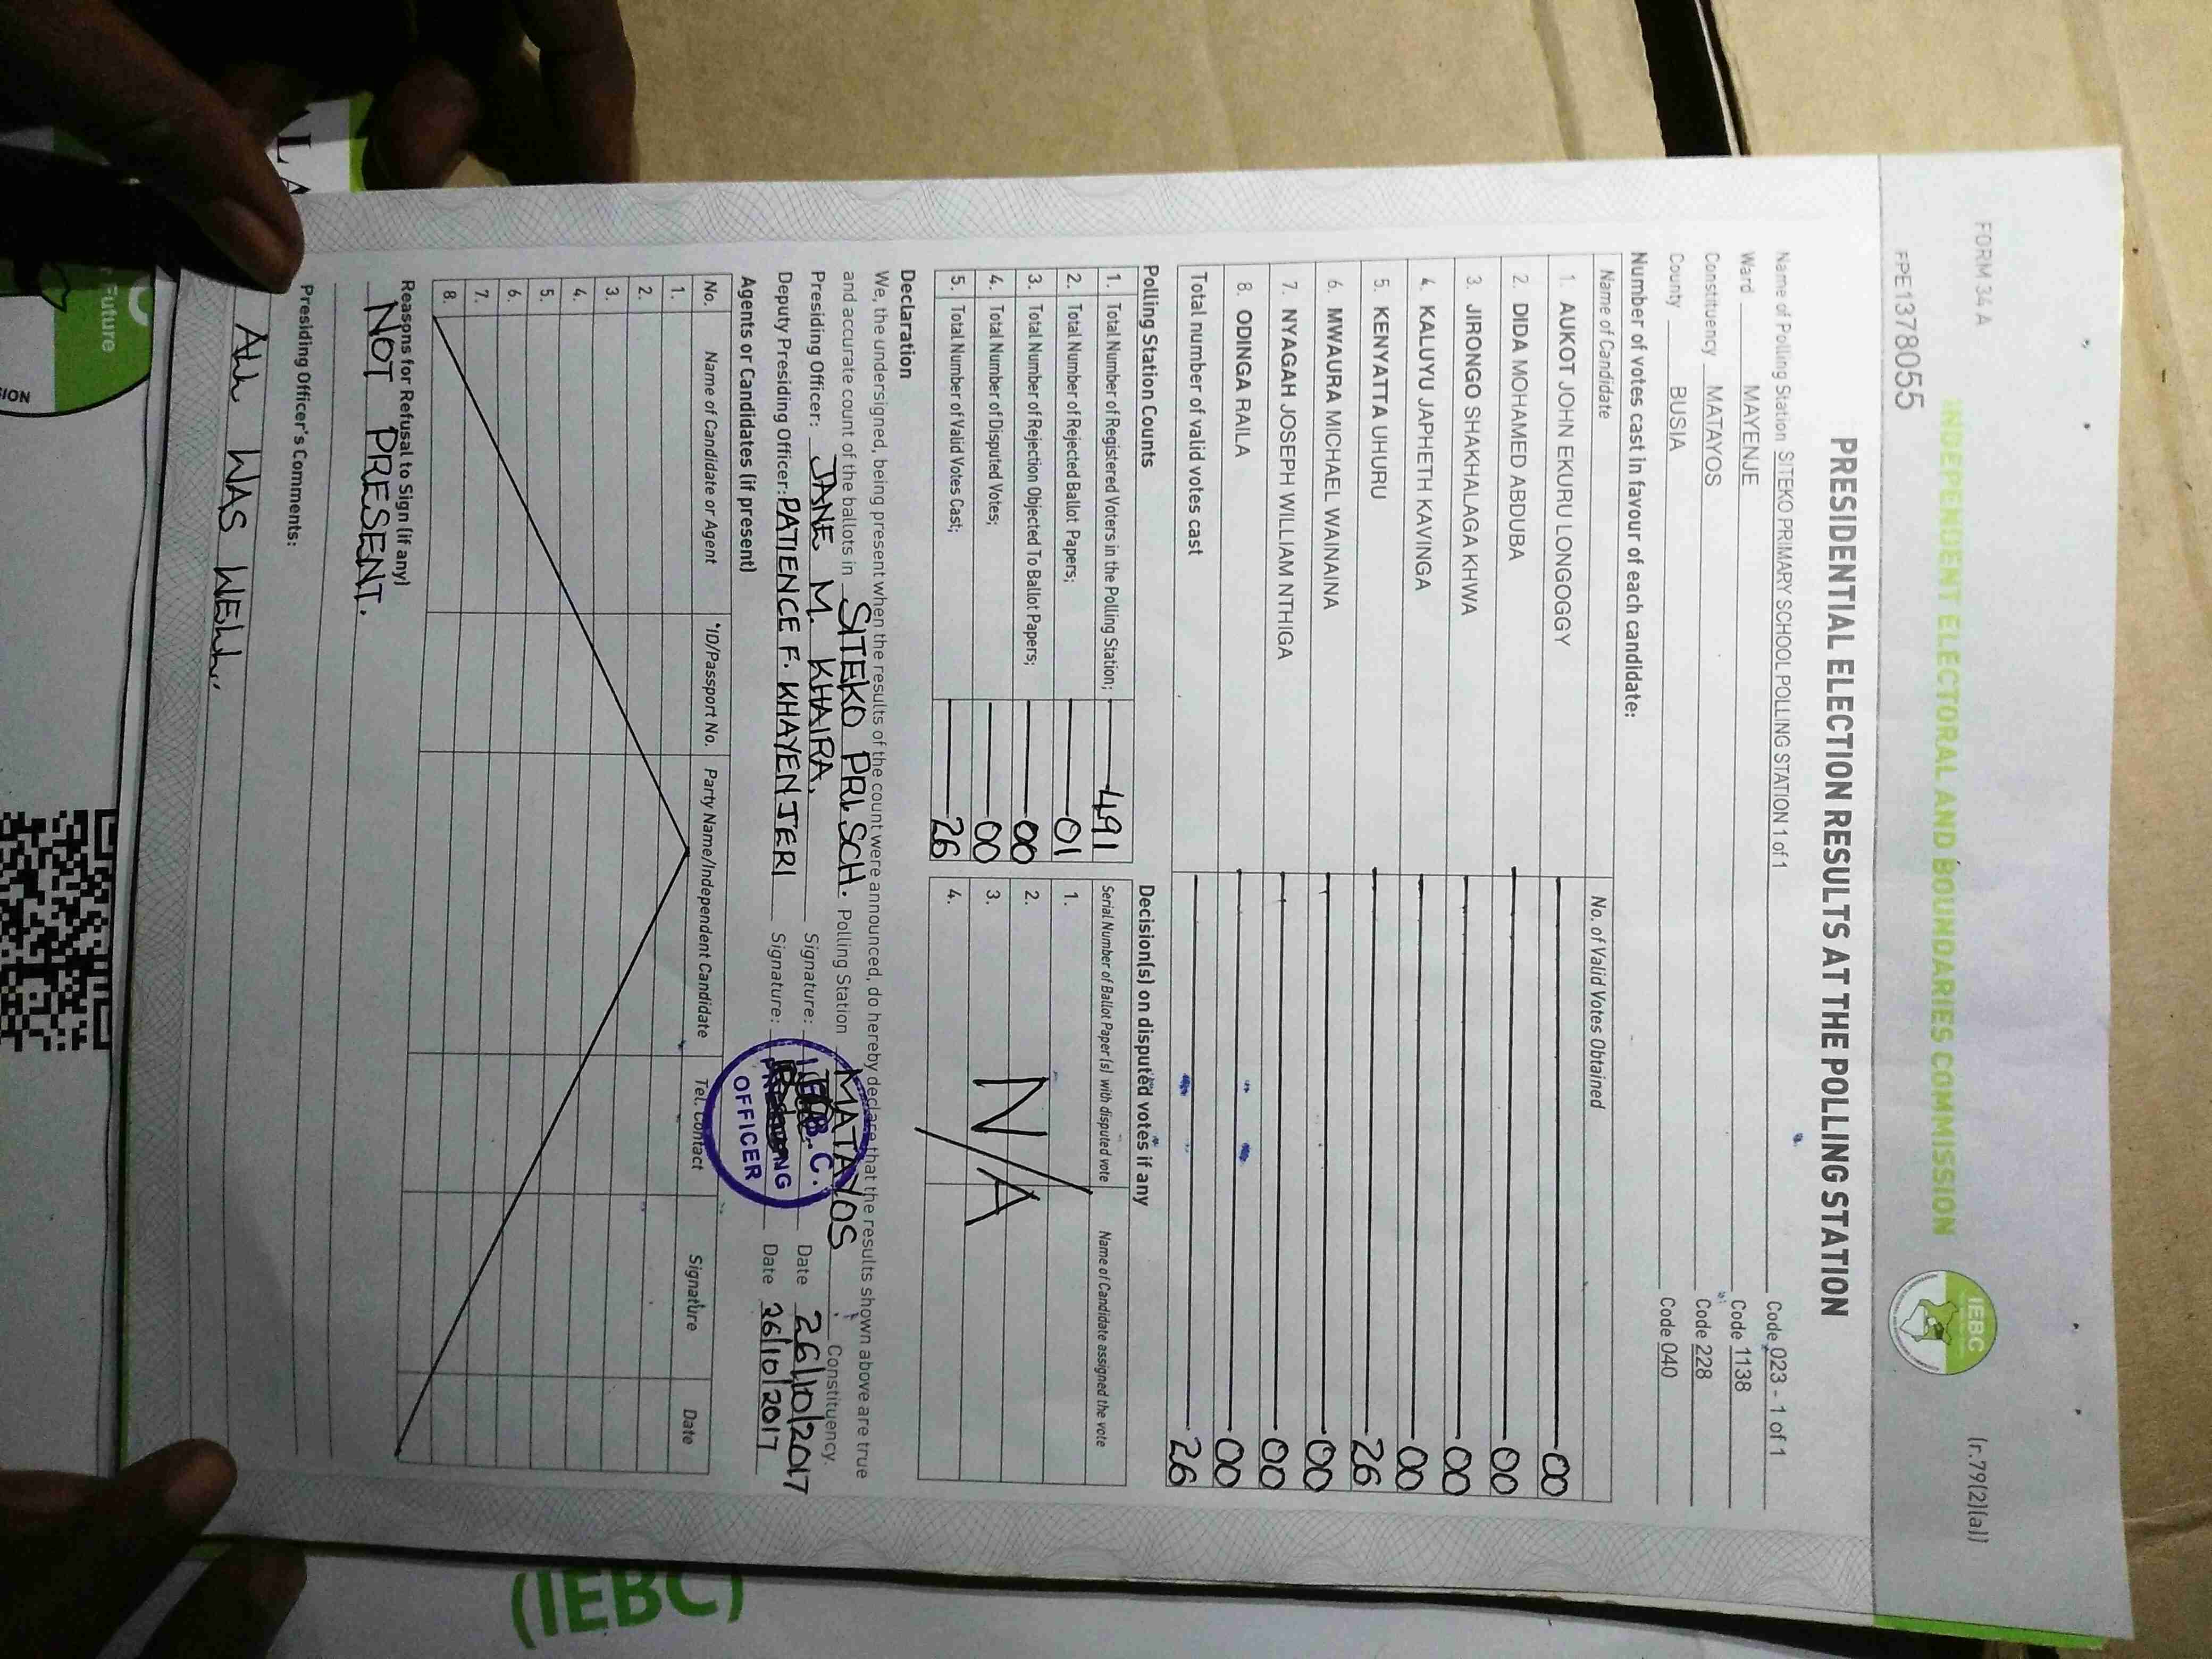 FORM 34 A
(r.79(2)(a))
INDEPENDENT ELECTORAL AND BOUNDARIES COMMISSION
IEBC
FPE1378055
PRESIDENTIAL ELECTION RESULTS AT THE POLLING STATION
Name of Polling Station SITEKO PRIMARY SCHOOL POLLING STATION 1 of 1 Code 023 - 1 of 1
Ward MAYENJE Code 1138
Constituency MATAYOS Code 228
County BUSIA Code 040
Number of votes cast in favour of each candidate:
Name of Candidate No. of Valid Votes Obtained
1. AUKOT JOHN EKURU LONGOGGY 00
2. DIDA MOHAMED ABDUBA 00
3. JIRONGO SHAKHALAGA KHWA 00
4. KALUYU JAPHETH KAVINGA 00
5. KENYATTA UHURU 26
6. MWAURA MICHAEL WAINAINA 00
7. NYAGAH JOSEPH WILLIAM NTHIGA 00
8. ODINGA RAILA 00
Total number of valid votes cast 26
Polling Station Counts
1. Total Number of Registered Voters in the Polling Station; 491
2. Total Number of Rejected Ballot Papers; 01
3. Total Number of Rejection Objected To Ballot Papers; 00
4. Total Number of Disputed Votes; 00
5. Total Number of Valid Votes Cast; 26
Decision(s) on disputed votes if any
Serial Number of Ballot Paper(s) with disputed vote Name of Candidate assigned the vote
1.
2.
3.
4.
N/A
Declaration
We, the undersigned, being present when the results of the count were announced, do hereby declare that the results shown above are true
and accurate count of the ballots in SITEKO PRI. SCH. Polling Station MATAYOS Constituency.
Presiding Officer: JANE M. KHAIRA. Signature: Date 26/10/2017
Deputy Presiding Officer: PATIENCE F. KHAYENJERI Signature: Date 26/10/2017
OFFICER
Agents or Candidates (if present)
No. Name of Candidate or Agent *ID/Passport No. Party Name/Independent Candidate Tel. Contact Signature Date
1.
2.
3.
4.
5.
6.
7.
8.
Reasons for Refusal to Sign (if any)
NOT PRESENT.
Presiding Officer's Comments:
ALL WAS WELL..
Future
(IEBC)